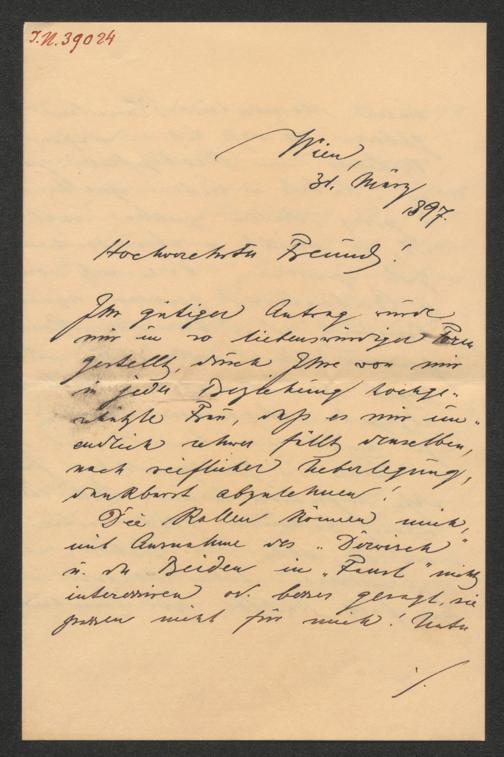 I.N. 39024
Wien,
31. März
1897.
Hochverehrter Freund!
Ihr gütiger Antrag wurde
mir in so liebenswürdiger Form
gestellt, durch Ihre von mir
in jeder Beziehung hochge-
schätzte Frau, daß es mir un-
endlich schwer fällt denselben,
nach reiflicher Ueberlegung,
dankbarst abzulehnen!
Die Rollen können mich,
mit Ausnahme des „Derwisch"
u. der Beiden in „Faust" nicht
interessiren od. besser gesagt, sie
passen nicht für mich! Unter
./.